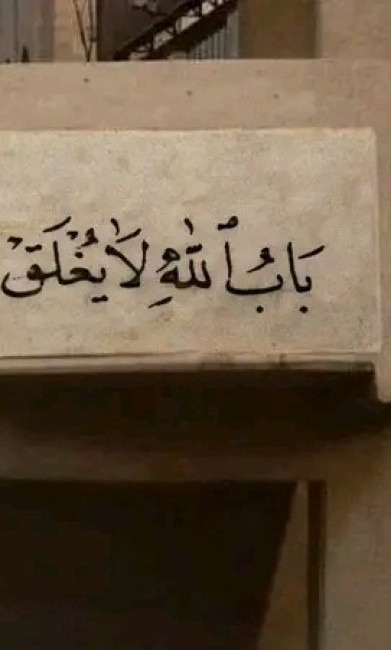 بَابُ ٱللَّٰهِ لَا يُغْلَقْ